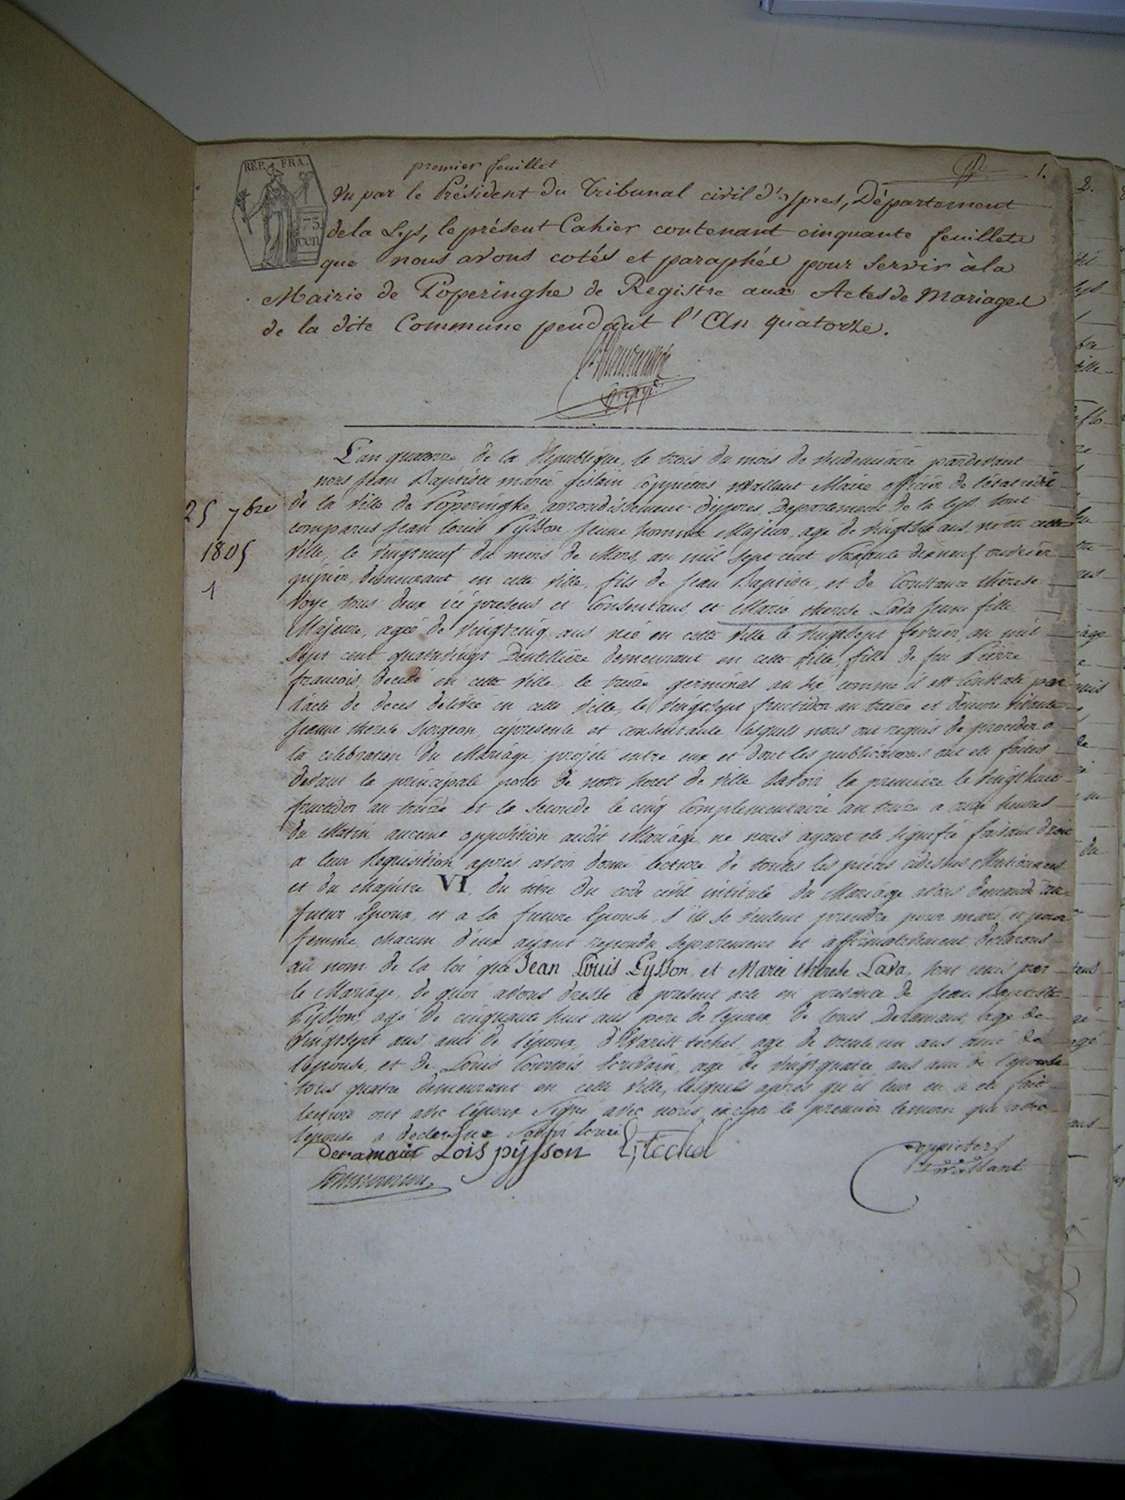 REP. FRA.
75
CEN.
premier feuillet
1.
Vu par le Président du Tribunal civil d'Ypres, Département
de la Lys, le présent Cahier contenant cinquante feuillets
que nous avons cotés et paraphés pour servir à la
Mairie de Poperinghe de Registre aux Actes de Mariages
de la dite Commune pendant l'An quatorze.
25 7bre
1805
1
L'an quatorze de la République, le trois du mois de vendemiaire pardevant
nous Jean Baptiste marie Gislain Maire officier de l'état civil
de la ville de Poperinghe, arrondissement d'ypres, Departement de la Lys sont
comparus Jean Louis Pysson jeune homme Majeur, age de vingt six ans, né en cette
ville, le vingtneuf du mois de Mars, an mil sept cent soixante dixneuf
demeurant en cette ville, fils de Jean Baptiste, et de Constance thérese
Voye, tous deux ici présens et Consentans et Marie therese Lava jeune fille
Majeure, agée de vingtcinq ans née en cette ville le vingtsept fevrier, an mil
Sept cent quatrevingt Dentellière demeurant en cette ville, fille de feu Pierre
francois, decedé en cette ville le treize germinal an dix comme il est constaté par
l'acte de deces délivré en cette ville, le vingtsept fructidor an treize et
Jeanne therese Surgeon, ci presente et consentante lesquels nous ont requis de proceder a
la celebration du Mariage projeté entre eux et dont les publications ont été faites
devant la principale porte de notre hotel de ville savoir la premiere le vingthuit
fructidor an treize et la seconde le cinq Complementaire an treize a heures
du Matin aucune opposition audit Mariage ne nous ayant été signifié faisant droit
a leur Requisition, après avoir donné lecture de toutes les pièces cidessus Mentionnées
et du chapitre VI du titre du code civil intitulé du Mariage avons demandé au
futur Epoux, et a la future Epouse, s'ils se veulent prendre pour mari, et pour
femme, chacun d'eux ayant repondu separement et affirmativement declarons
au nom de la loi que Jean Louis Pysson, et Marie therese Lava, sont unis par
le Mariage, de quoi avons dressé ce present acte en presence de Jean Baptiste
Pysson agé de cinquante huit ans pere de l'epoux de Louis Deramaut, age de
vingtsept ans ami de l'époux, d'Evarist techel, age de trente un ans ami de
l'epouse, et de Louis age de vingtquatre ans ami de l'epouse
tous quatre demeurant en cette ville, lesquels apres qu'il leur en a été fait
lecture ont avec l'époux Signé avec nous, excepté le premier temoin que
l'épouse a declaré ne
Deramaut Lois pysson E, techel